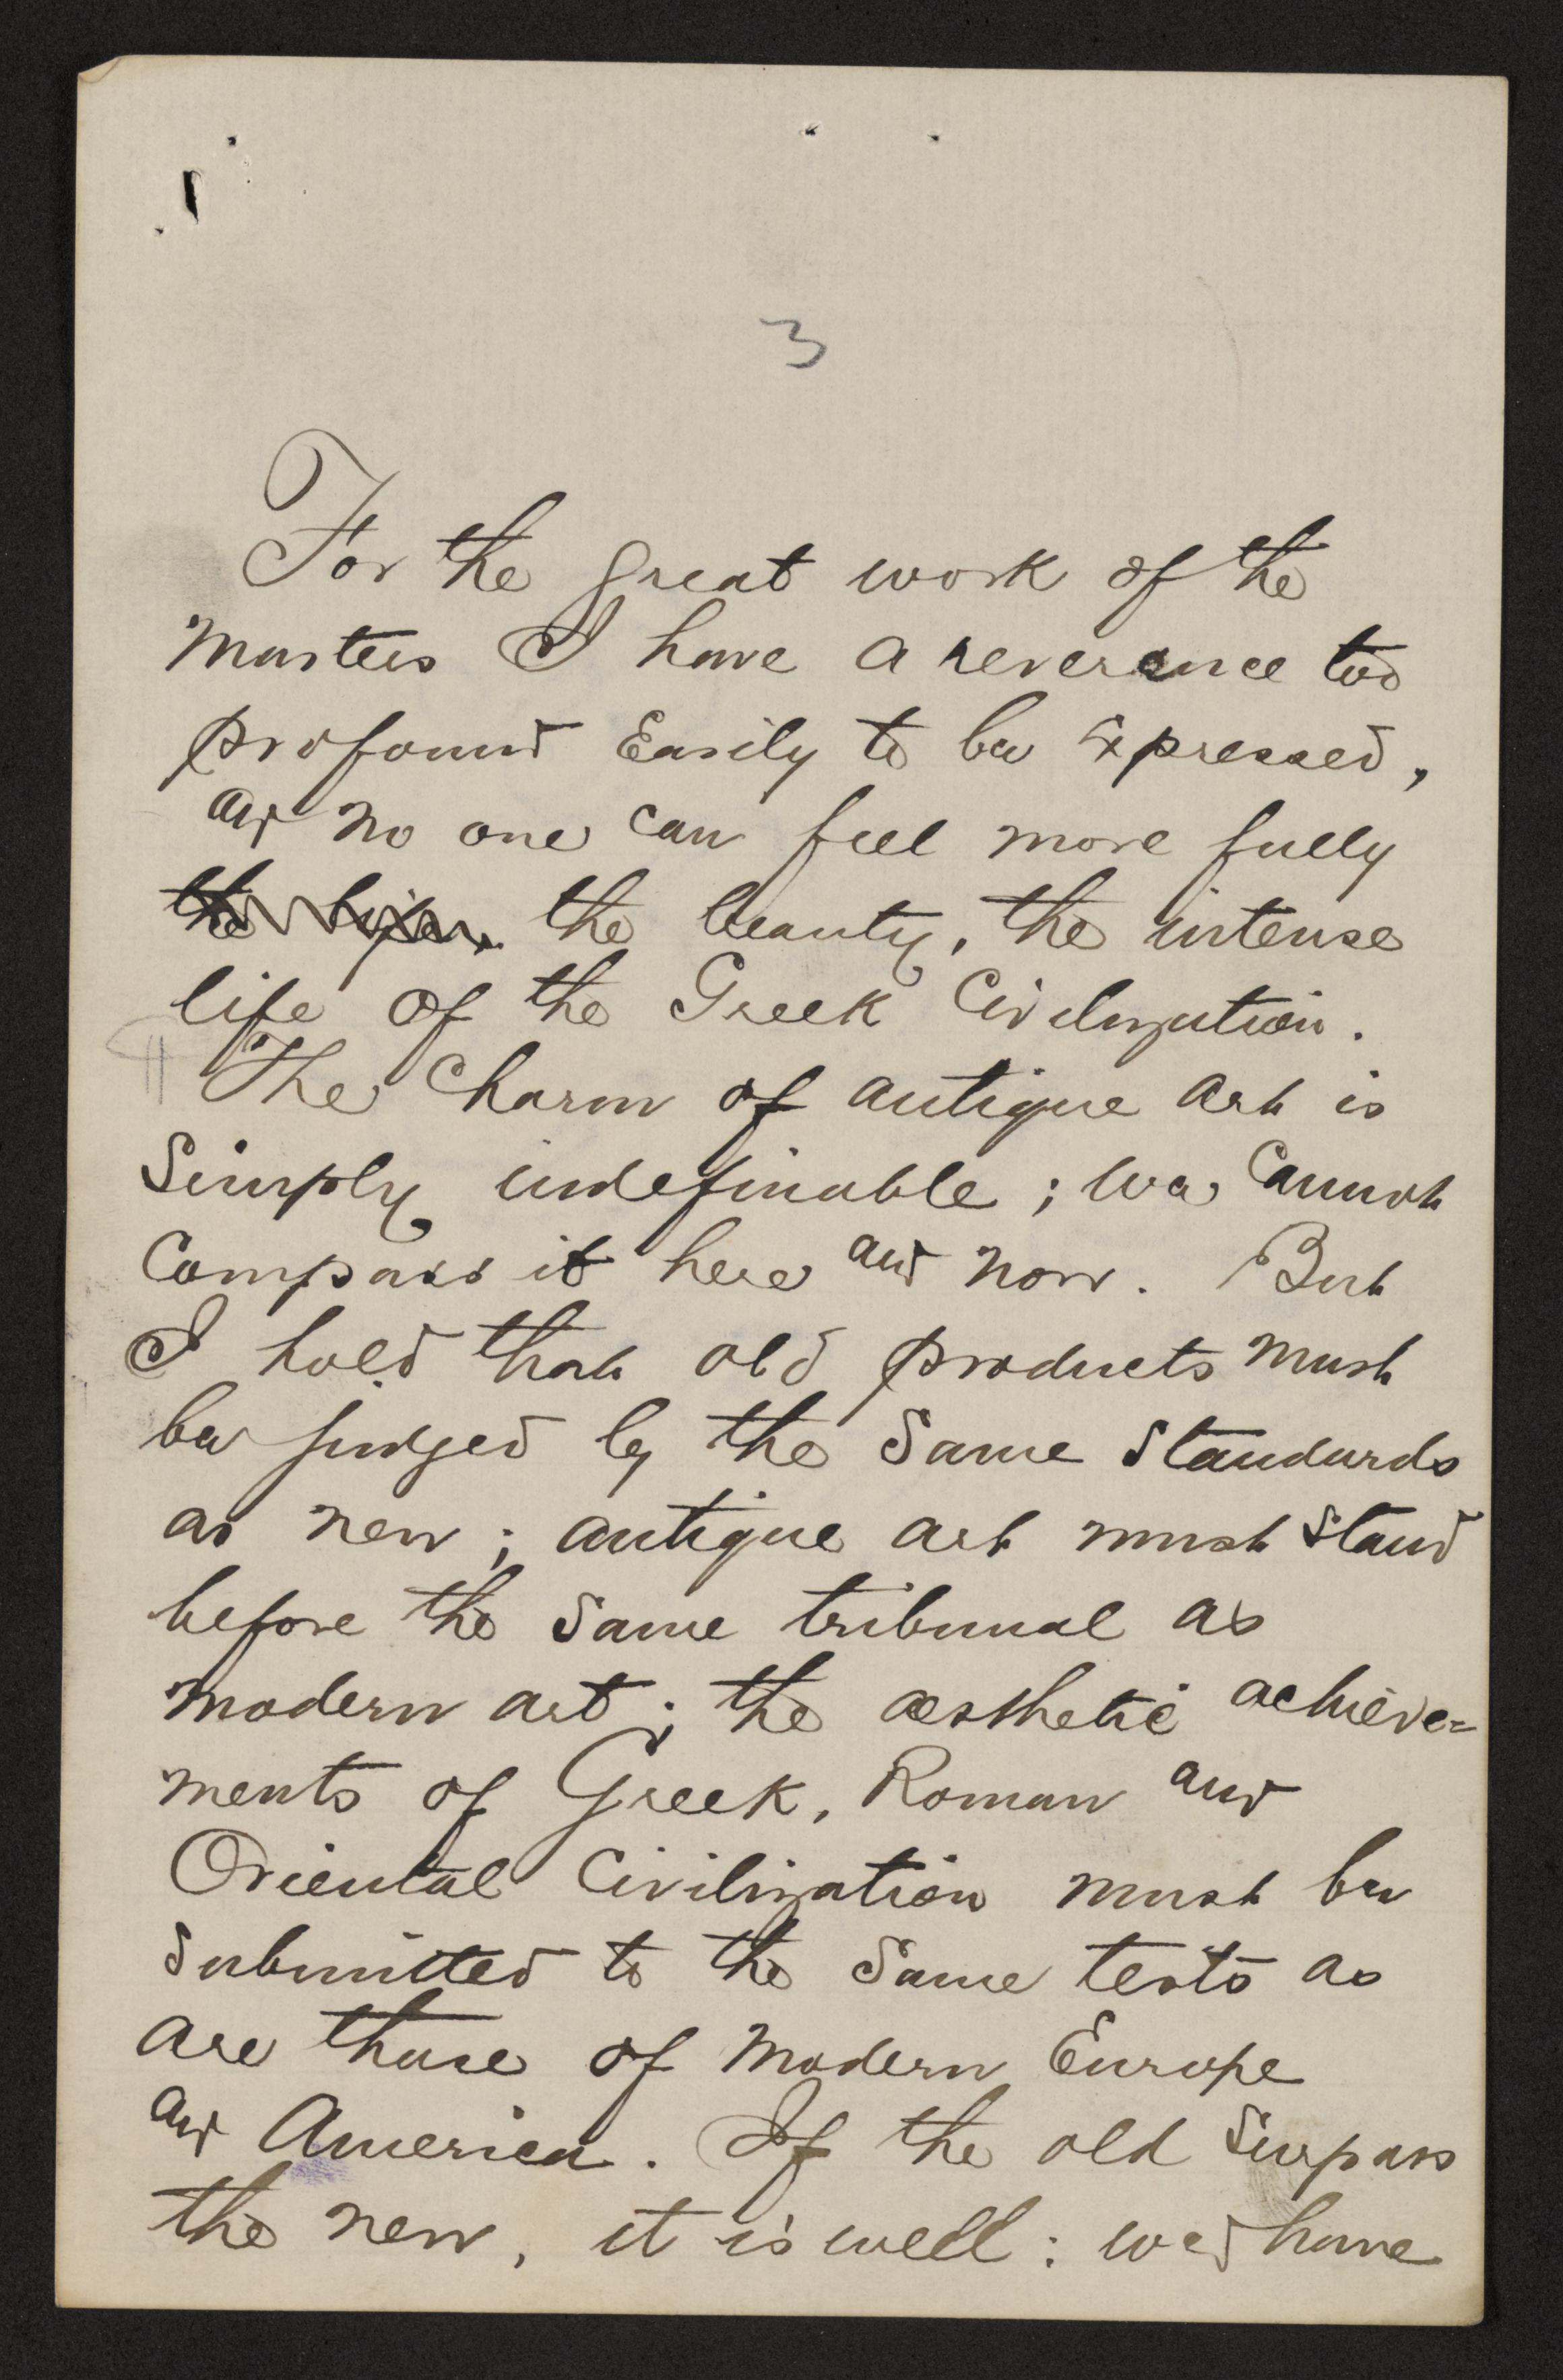 3
For the great work of the
Masters I have a reverence too
profound Easily to be Expressed,
and no one can feel more fully
the the beauty, the intense
life of the Greek Civilization.
¶ The Charm of antique art is
Simply indefinable; we Cannot
Compass it here and now. But
I hold that old products must
be judged by the Same Standards
as new; antique art must Stand
before the Same tribunal as
modern art; the æsthetic achieve=
ments of Greek, Roman and
Oriental Civilization must be
Submitted to the Same tests as
are those of Modern Europe
and America. If the old Surpass
the new, it is well: we have